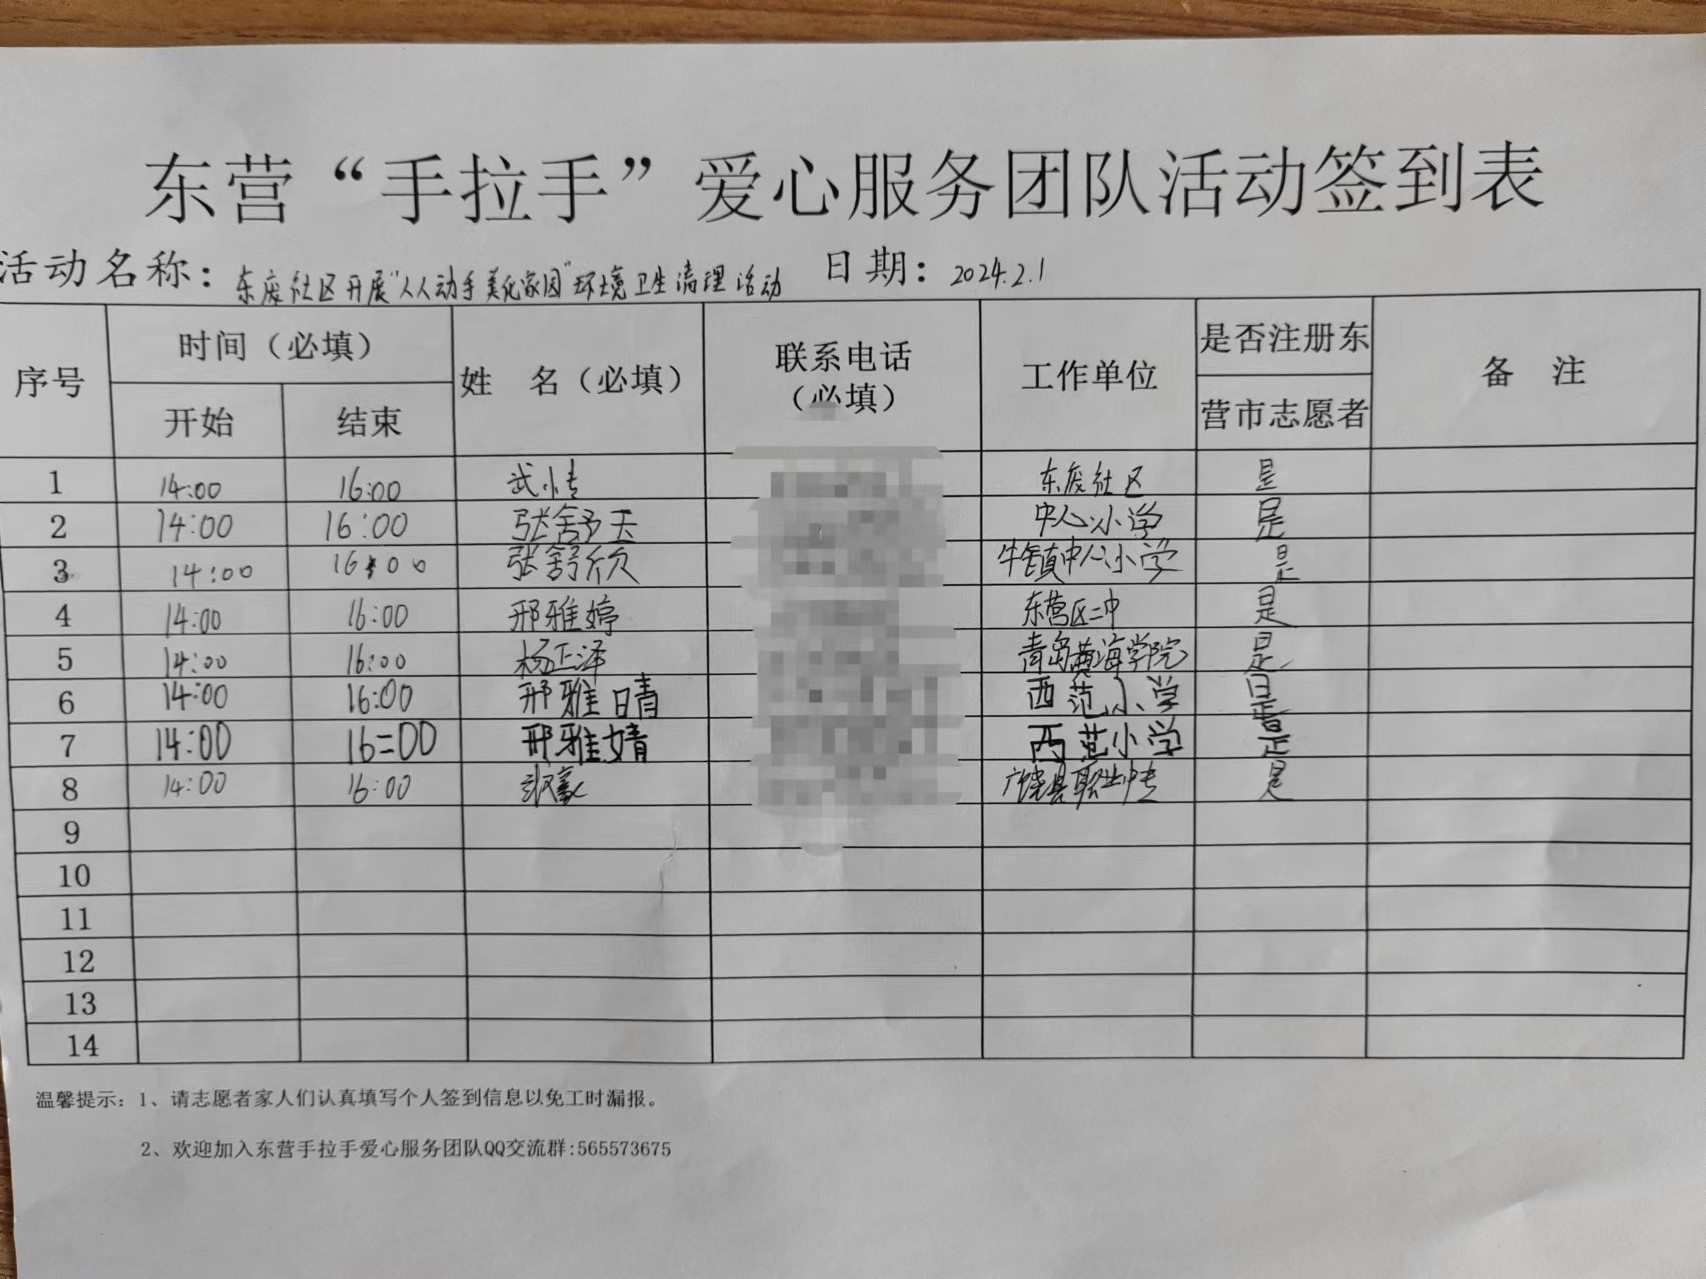 东营“手拉手”爱心服务团队活动签到表
活动名称：东废社区开展“人人动手美化家园”环境卫生清理活动 日期：2024.2.1
序号 时间（必填） 姓 名（必填） 联系电话（必填） 工作单位 是否注册东营市志愿者 备 注
开始 结束
1 14:00 16:00 武小 东废社区 是
2 14:00 16:00 张舒 中心小学 是
3 14:00 16:00 张舒欣 牛镇中心小学 是
4 14:00 16:00 邢雅婷 东营区二中 是
5 14:00 16:00 杨正泽 青岛黄海学院 是
6 14:00 16:00 邢雅晴 西范小学 是
7 14:00 16:00 邢雅婧 西范小学 是
8 14:00 16:00 广饶县职业中专 是
9
10
11
12
13
14
温馨提示：1、请志愿者家人们认真填写个人签到信息以免工时漏报。
2、欢迎加入东营手拉手爱心服务团队QQ交流群:565573675